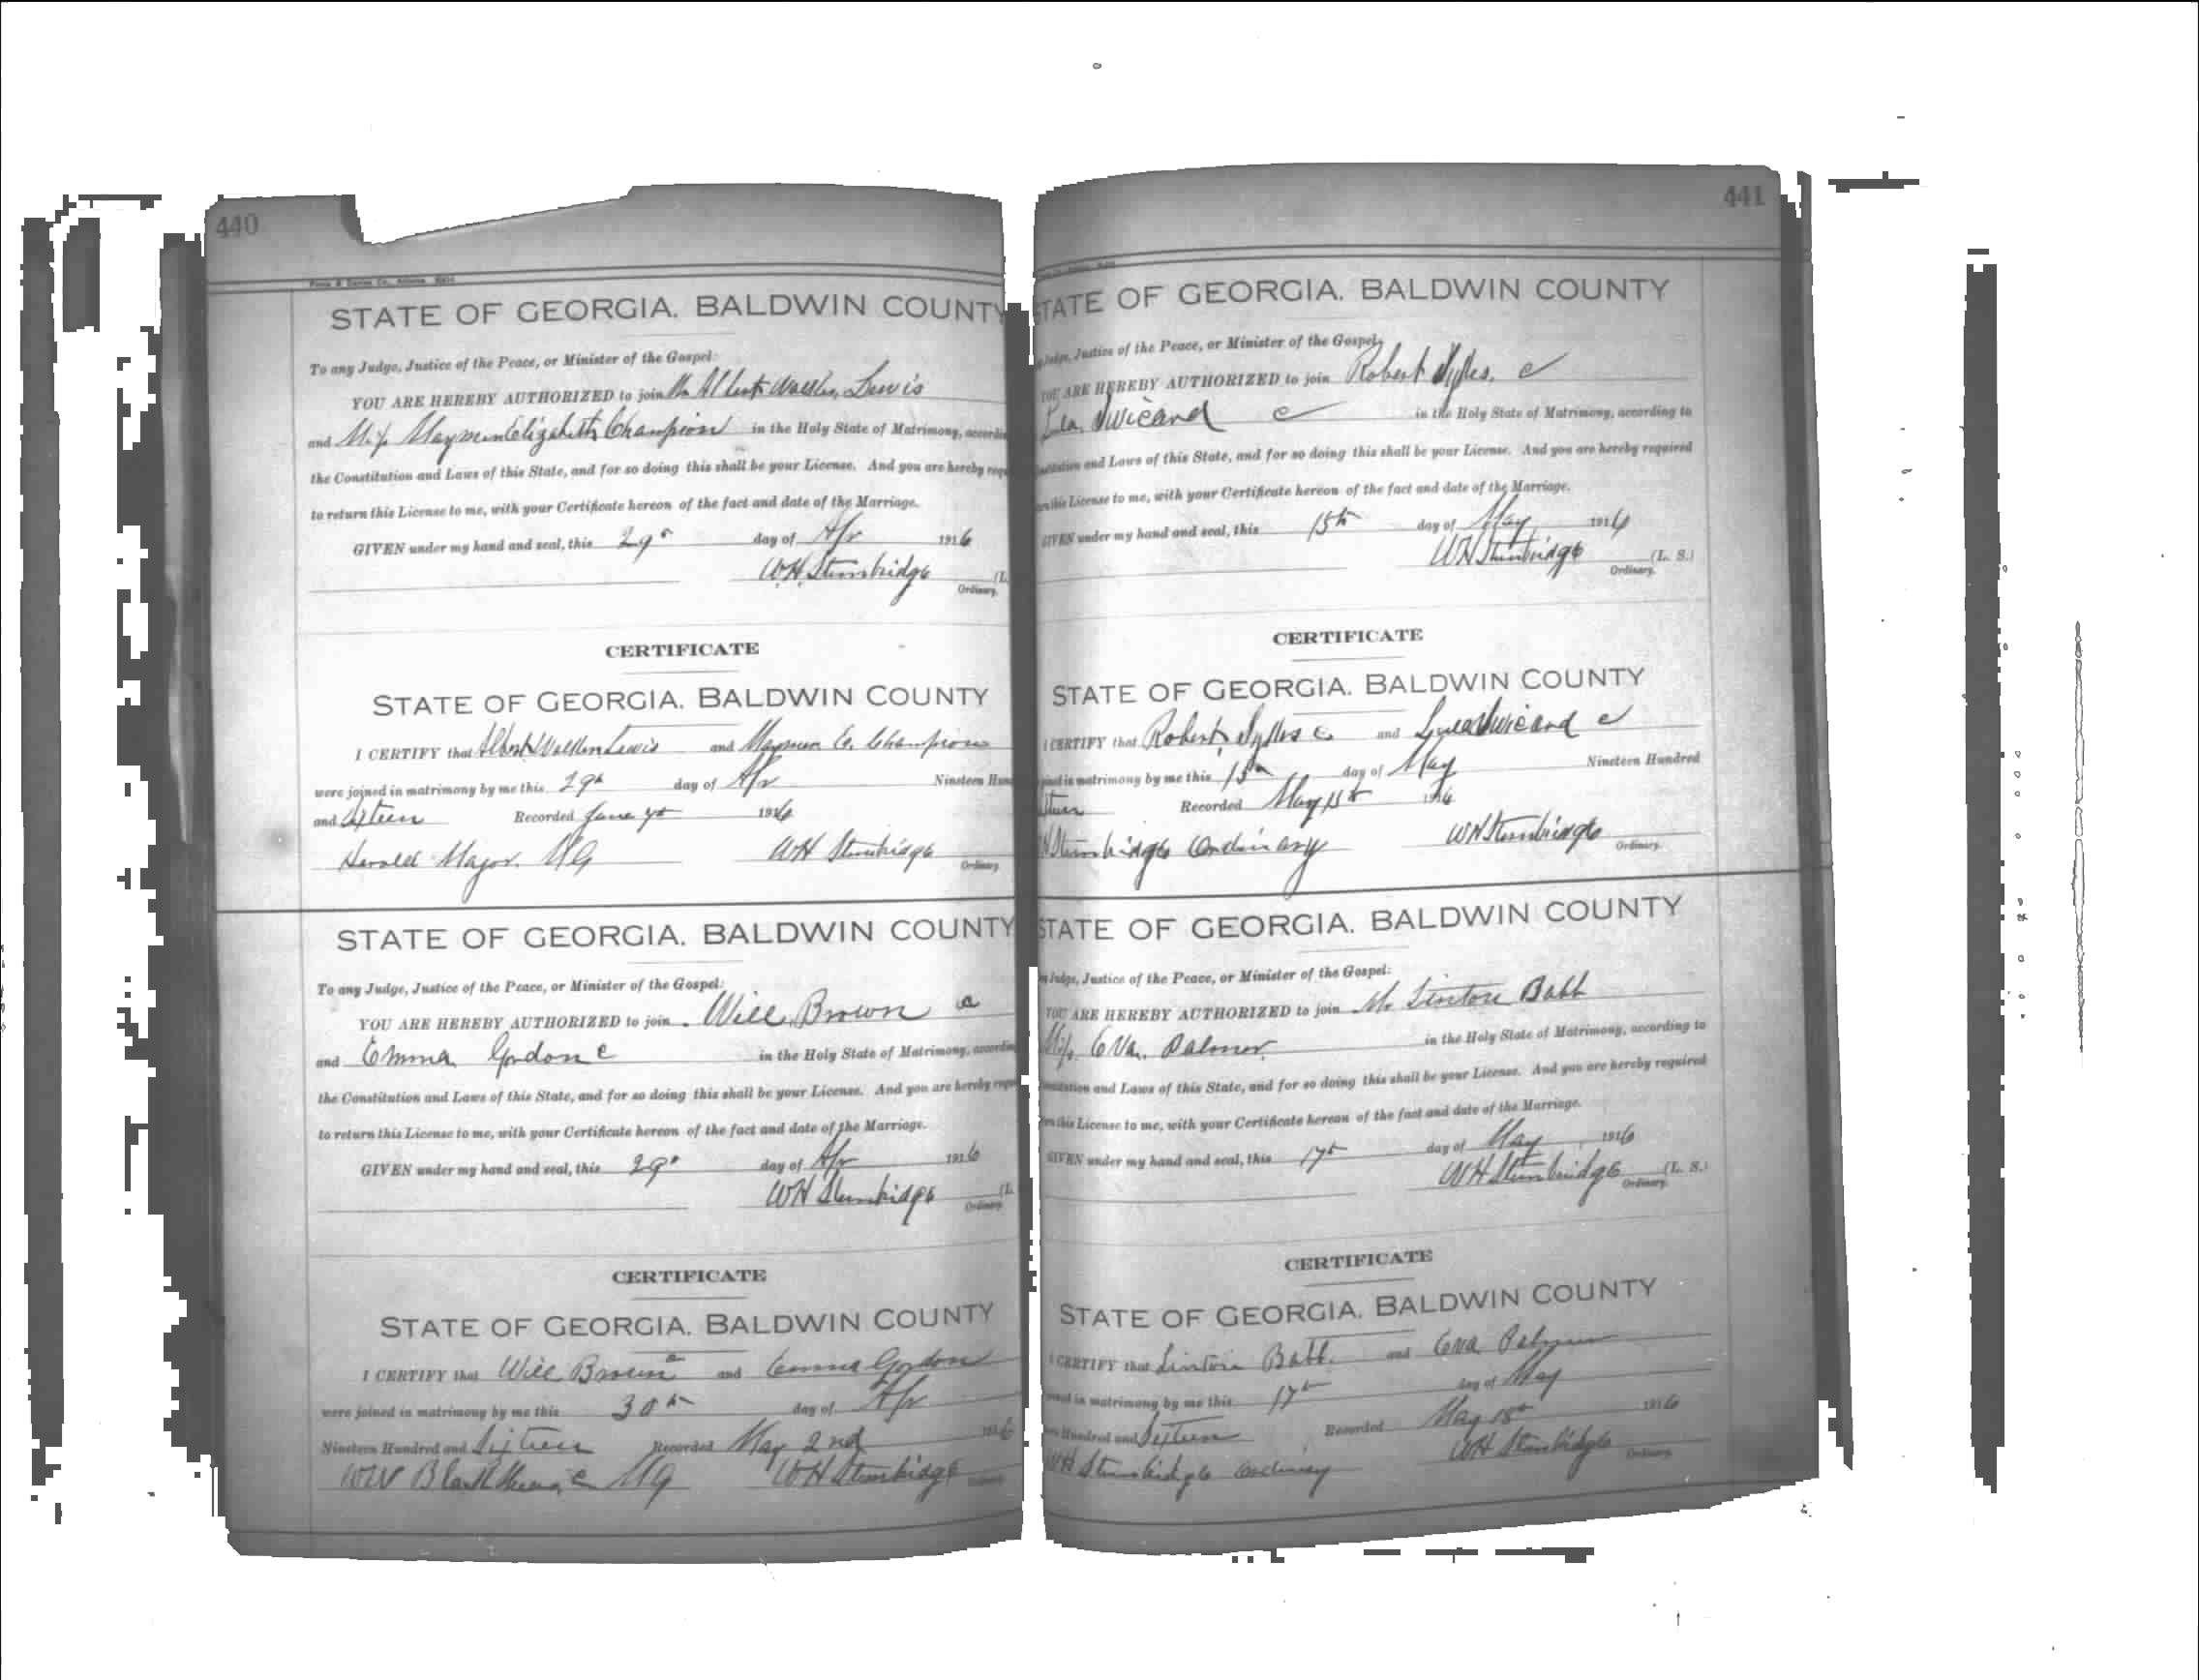 440
STATE OF GEORGIA. BALDWIN COUNTY
To any Judge, Justice of the Peace, or Minister of the Gospel:
YOU ARE HEREBY AUTHORIZED to join Mr Albert Walker Lewis
and Miss Elizabeth Champion in the Holy State of Matrimony,
the Constitution and Laws of this State, and for so doing this shall be your License. And you are hereby
to return this License to me, with your Certificate hereon of the fact and date of the Marriage.
GIVEN under my hand and seal, this 29 day of Apr 1916
W.H. Stembridge
Ordinary.
CERTIFICATE
STATE OF GEORGIA. BALDWIN COUNTY
I CERTIFY that Albert Walker Lewis and E. Champion
were joined in matrimony by me this 29 day of Apr Nineteen
and Sixteen Recorded June 1916
Harold Major. MG WH Stembridge
Ordinary
STATE OF GEORGIA. BALDWIN COUNTY
To any Judge, Justice of the Peace, or Minister of the Gospel:
YOU ARE HEREBY AUTHORIZED to join Will Brown c
and Emma Gordon c in the Holy State of Matrimony,
the Constitution and Laws of this State, and for so doing this shall be your License. And you are hereby
to return this License to me, with your Certificate hereon of the fact and date of the Marriage.
GIVEN under my hand and seal, this 29 day of Apr 1916
WH Stembridge
Ordinary
CERTIFICATE
STATE OF GEORGIA. BALDWIN COUNTY
I CERTIFY that Will Brown c and Emma Gordon
were joined in matrimony by me this 30th day of Apr
Nineteen Hundred and Sixteen Recorded May 2nd 1916
MG WH Stembridge
441
STATE OF GEORGIA. BALDWIN COUNTY
Judge, Justice of the Peace, or Minister of the Gospel:
YOU ARE HEREBY AUTHORIZED to join Robert c
c in the Holy State of Matrimony, according to
and Laws of this State, and for so doing this shall be your License. And you are hereby required
this License to me, with your Certificate hereon of the fact and date of the Marriage.
GIVEN under my hand and seal, this 15th day of May 1916
WH Stembridge (L. S.)
Ordinary.
CERTIFICATE
STATE OF GEORGIA. BALDWIN COUNTY
I CERTIFY that Robert c and c
in matrimony by me this 15th day of May Nineteen Hundred
Recorded May 15th 1916
Stembridge Ordinary WH Stembridge
Ordinary.
STATE OF GEORGIA. BALDWIN COUNTY
Judge, Justice of the Peace, or Minister of the Gospel:
YOU ARE HEREBY AUTHORIZED to join Mr Linton Babb
Miss Eva Palmer in the Holy State of Matrimony, according to
and Laws of this State, and for so doing this shall be your License. And you are hereby required
this License to me, with your Certificate hereon of the fact and date of the Marriage.
GIVEN under my hand and seal, this 17th day of May 1916
WH Stembridge (L. S.)
Ordinary.
CERTIFICATE
STATE OF GEORGIA. BALDWIN COUNTY
I CERTIFY that Linton Babb and Eva Palmer
in matrimony by me this 17th day of May
Hundred and Sixteen Recorded May 18th 1916
WH Stembridge Ordinary WH Stembridge
Ordinary